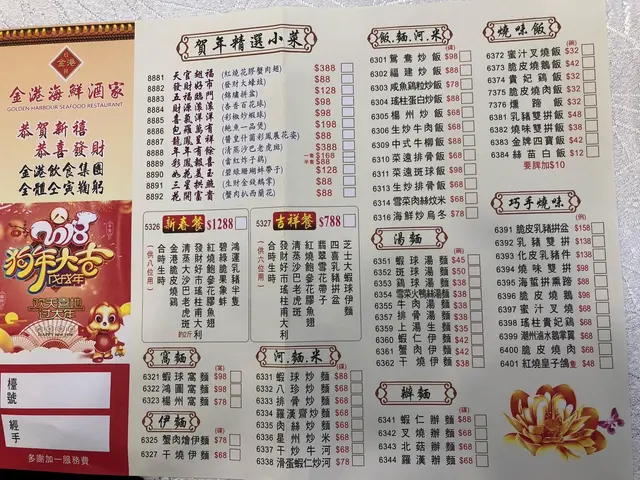 金港海鮮酒家
GOLDEN HARBOUR SEAFOOD RESTAURANT
恭賀新禧
恭喜發財
金港飲食集團
全體仝寅鞠躬
2018
狗年大吉
戊戌年
檯號
經手
多謝加一服務費
賀年精選小菜
8881 天官翅福 (紅燒花膠蟹肉翅) $388
8882 發財好市 (發財大蠔豉) $88
8883 五福臨門 $188
8884 財源滾滾 $98
8885 喜氣洋洋 $98
8886 包羅萬有 (鮑魚一品煲) $198
8887 龍鳳呈祥
8888 年年有餘 (清蒸沙巴老虎斑) $388
8889 彩鳳報喜 (當紅炸子鷄) 一隻$168 半隻$88
8890 如花美玉 $128
8891 三星拱照 $88
8892 花開富貴 (蟹肉扒西蘭花) $88
5328 新春餐 $1288
(供八位用)
鴻運乳豬半隻
碧綠脆果象蚌
紅燒鮑參花膠翅
發財好市瑤柱甫大利
清蒸大沙巴老虎斑 約2斤
金港脆皮燒鷄
合時生時
5327 吉祥餐 $788
(供六位用)
芝士大蝦球伊麵
四喜乳豬拼盆
翡翠雪花帶子
紅燒鮑參花膠魚翅
清蒸沙巴老虎斑
發財好市瑤柱甫大利
合時生時
窩麵
6321 蝦球窩麵 $98
6322 鴻圖窩麵 $98
6323 楊州窩麵 $78
伊麵
6325 蟹肉燴伊麵 $78
6327 干燒伊麵 $68
河.麵.米
6331 蝦球炒麵 $88
6332 八珍炒麵 $68
6333 排骨炒麵 $68
6334 羅漢齋炒麵 $68
6335 肉絲炒麵 $68
6336 星州炒米 $68
6337 干炒牛河 $68
6338 滑蛋蝦仁炒河 $78
飯.麵.河.米
6301 鴛鴦炒飯 $98
6302 福建炒飯 $88
6303 咸魚鷄粒炒飯 $68
6304 瑤柱蛋白炒飯 $88
6305 楊州炒飯 $68
6306 生炒牛肉飯 $68
6309 中式牛柳飯 $88
6310 菜遠排骨飯 $68
6311 菜遠斑球飯 $98
6313 生炒排骨飯 $68
6314 雪菜肉絲炆米 $68
6316 海鮮炒烏冬 $78
湯麵
6351 蝦球湯麵 $45
6352 斑球湯麵 $50
6353 魚球湯麵 $38
6354 雪菜火鴨絲湯麵 $38
6357 牛肉湯麵 $38
6358 排骨湯麵 $38
6359 上湯生麵 $35
6360 蝦仁伊麵 $42
6361 蟹肉伊麵 $42
6362 干燒伊麵 $38
辦麵
6341 蝦仁辦麵 $88
6342 叉燒辦麵 $68
6343 北菇辦麵 $68
6344 羅漢辦麵 $68
燒味飯
6372 蜜汁叉燒飯 $32
6373 脆皮燒鵝飯 $42
6374 貴妃鷄飯 $32
6375 脆皮燒肉飯 $32
7376 燻蹄飯 $32
6381 乳豬雙拼飯 $48
6382 燒味雙拼飯 $38
6383 金牌四寶飯 $42
6384 絲苗白飯 $12
要牌加$10
巧手燒味
6391 脆皮乳豬拼盆 $158
6392 乳豬雙拼 $138
6393 化皮乳豬件 $138
6394 燒味雙拼 $98
6395 海蜇拼熏蹄 $88
6396 脆皮燒鵝 $98
6397 蜜汁叉燒 $68
6398 瑤柱貴妃鷄 $68
6399 潮州滷水鵝掌翼 $68
6400 脆皮燒肉 $68
6401 紅燒皇子鴿 $48